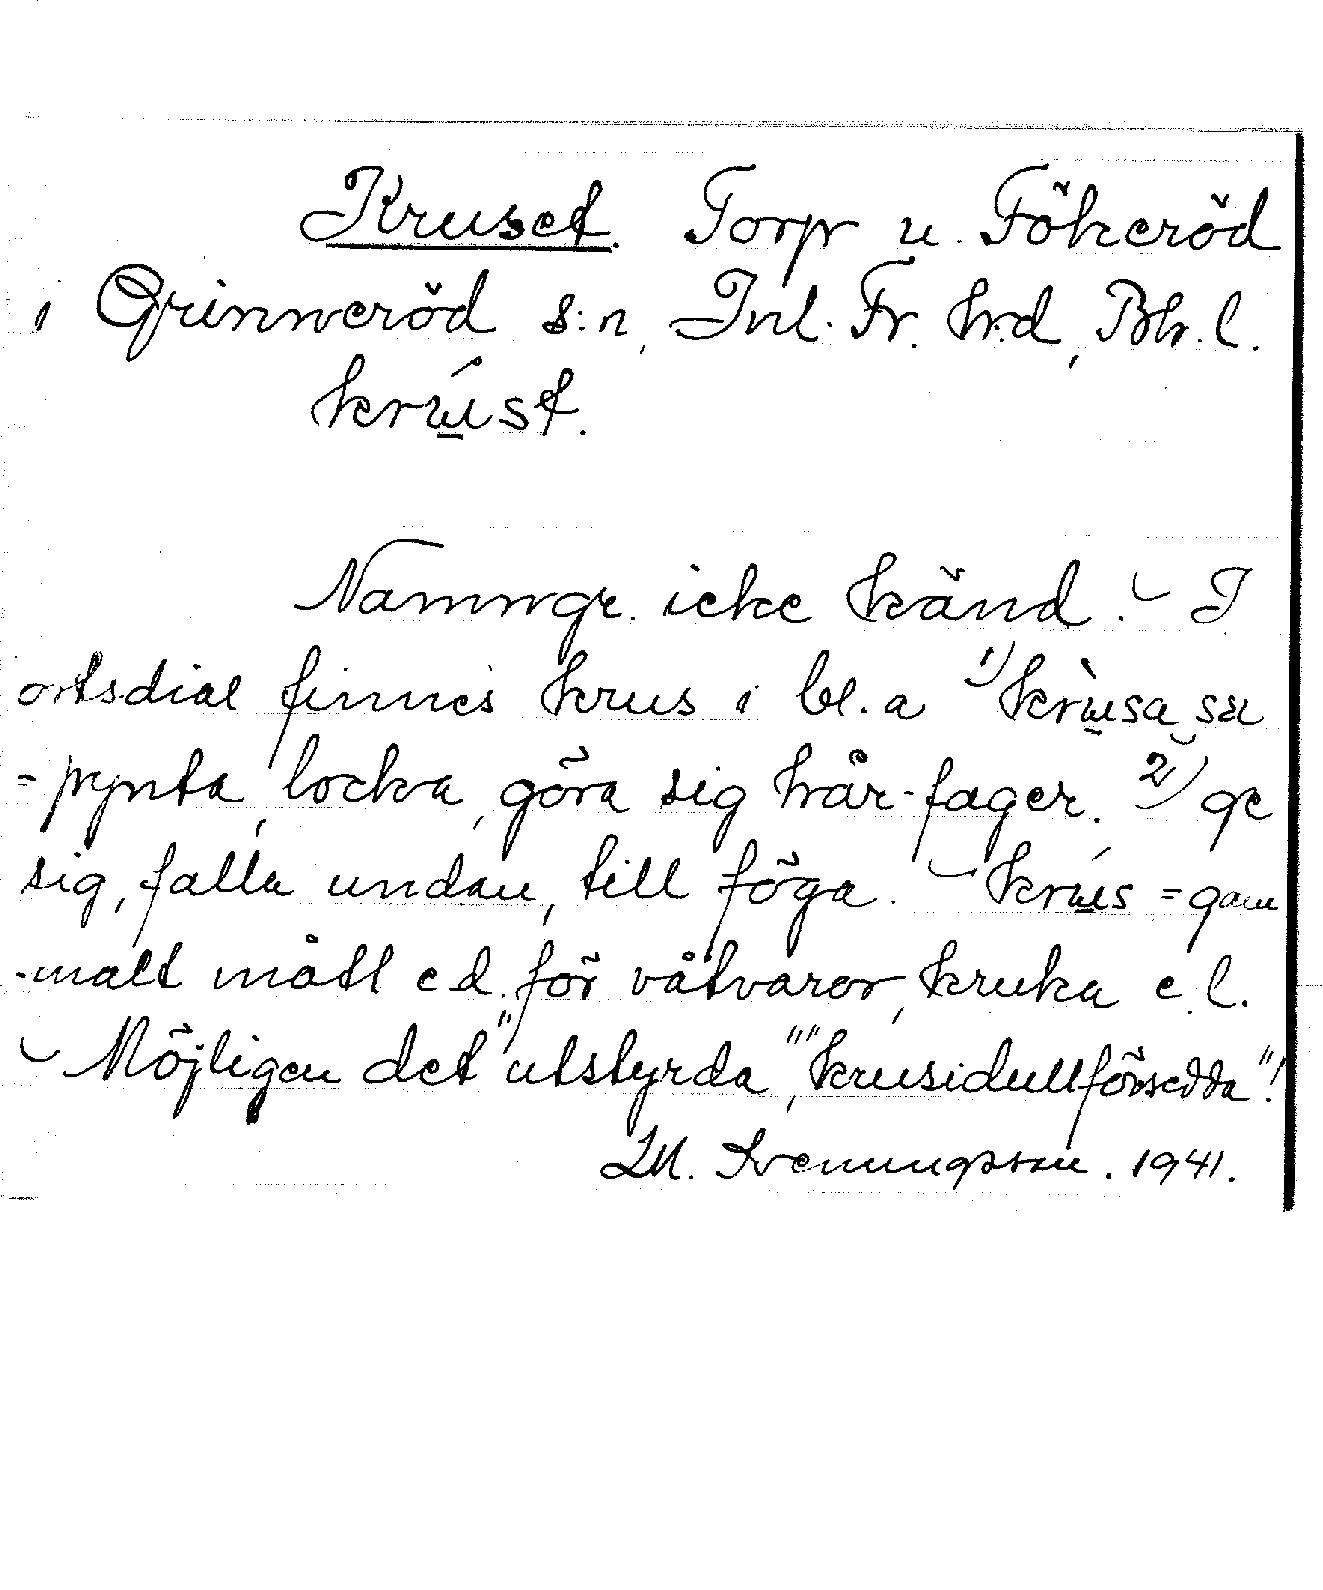 Kruset. Torp u. Fökeröd
i Grinneröd s:n, Inl. Fr. hrd, Bh. l.
krúst.
Namngr. icke känd. – I
ortsdial finnes krus i bl. a 1) krùsa sæ
= pynta, locka, göra sig hår-fager. 2) ge
sig, falla undan, till föga. – krús = gam
-malt mått e d. för våtvaror, kruka e. l.
– Möjligen det "utstyrda", "krusidullförsedda"!
M. Svenungsson. 1941.